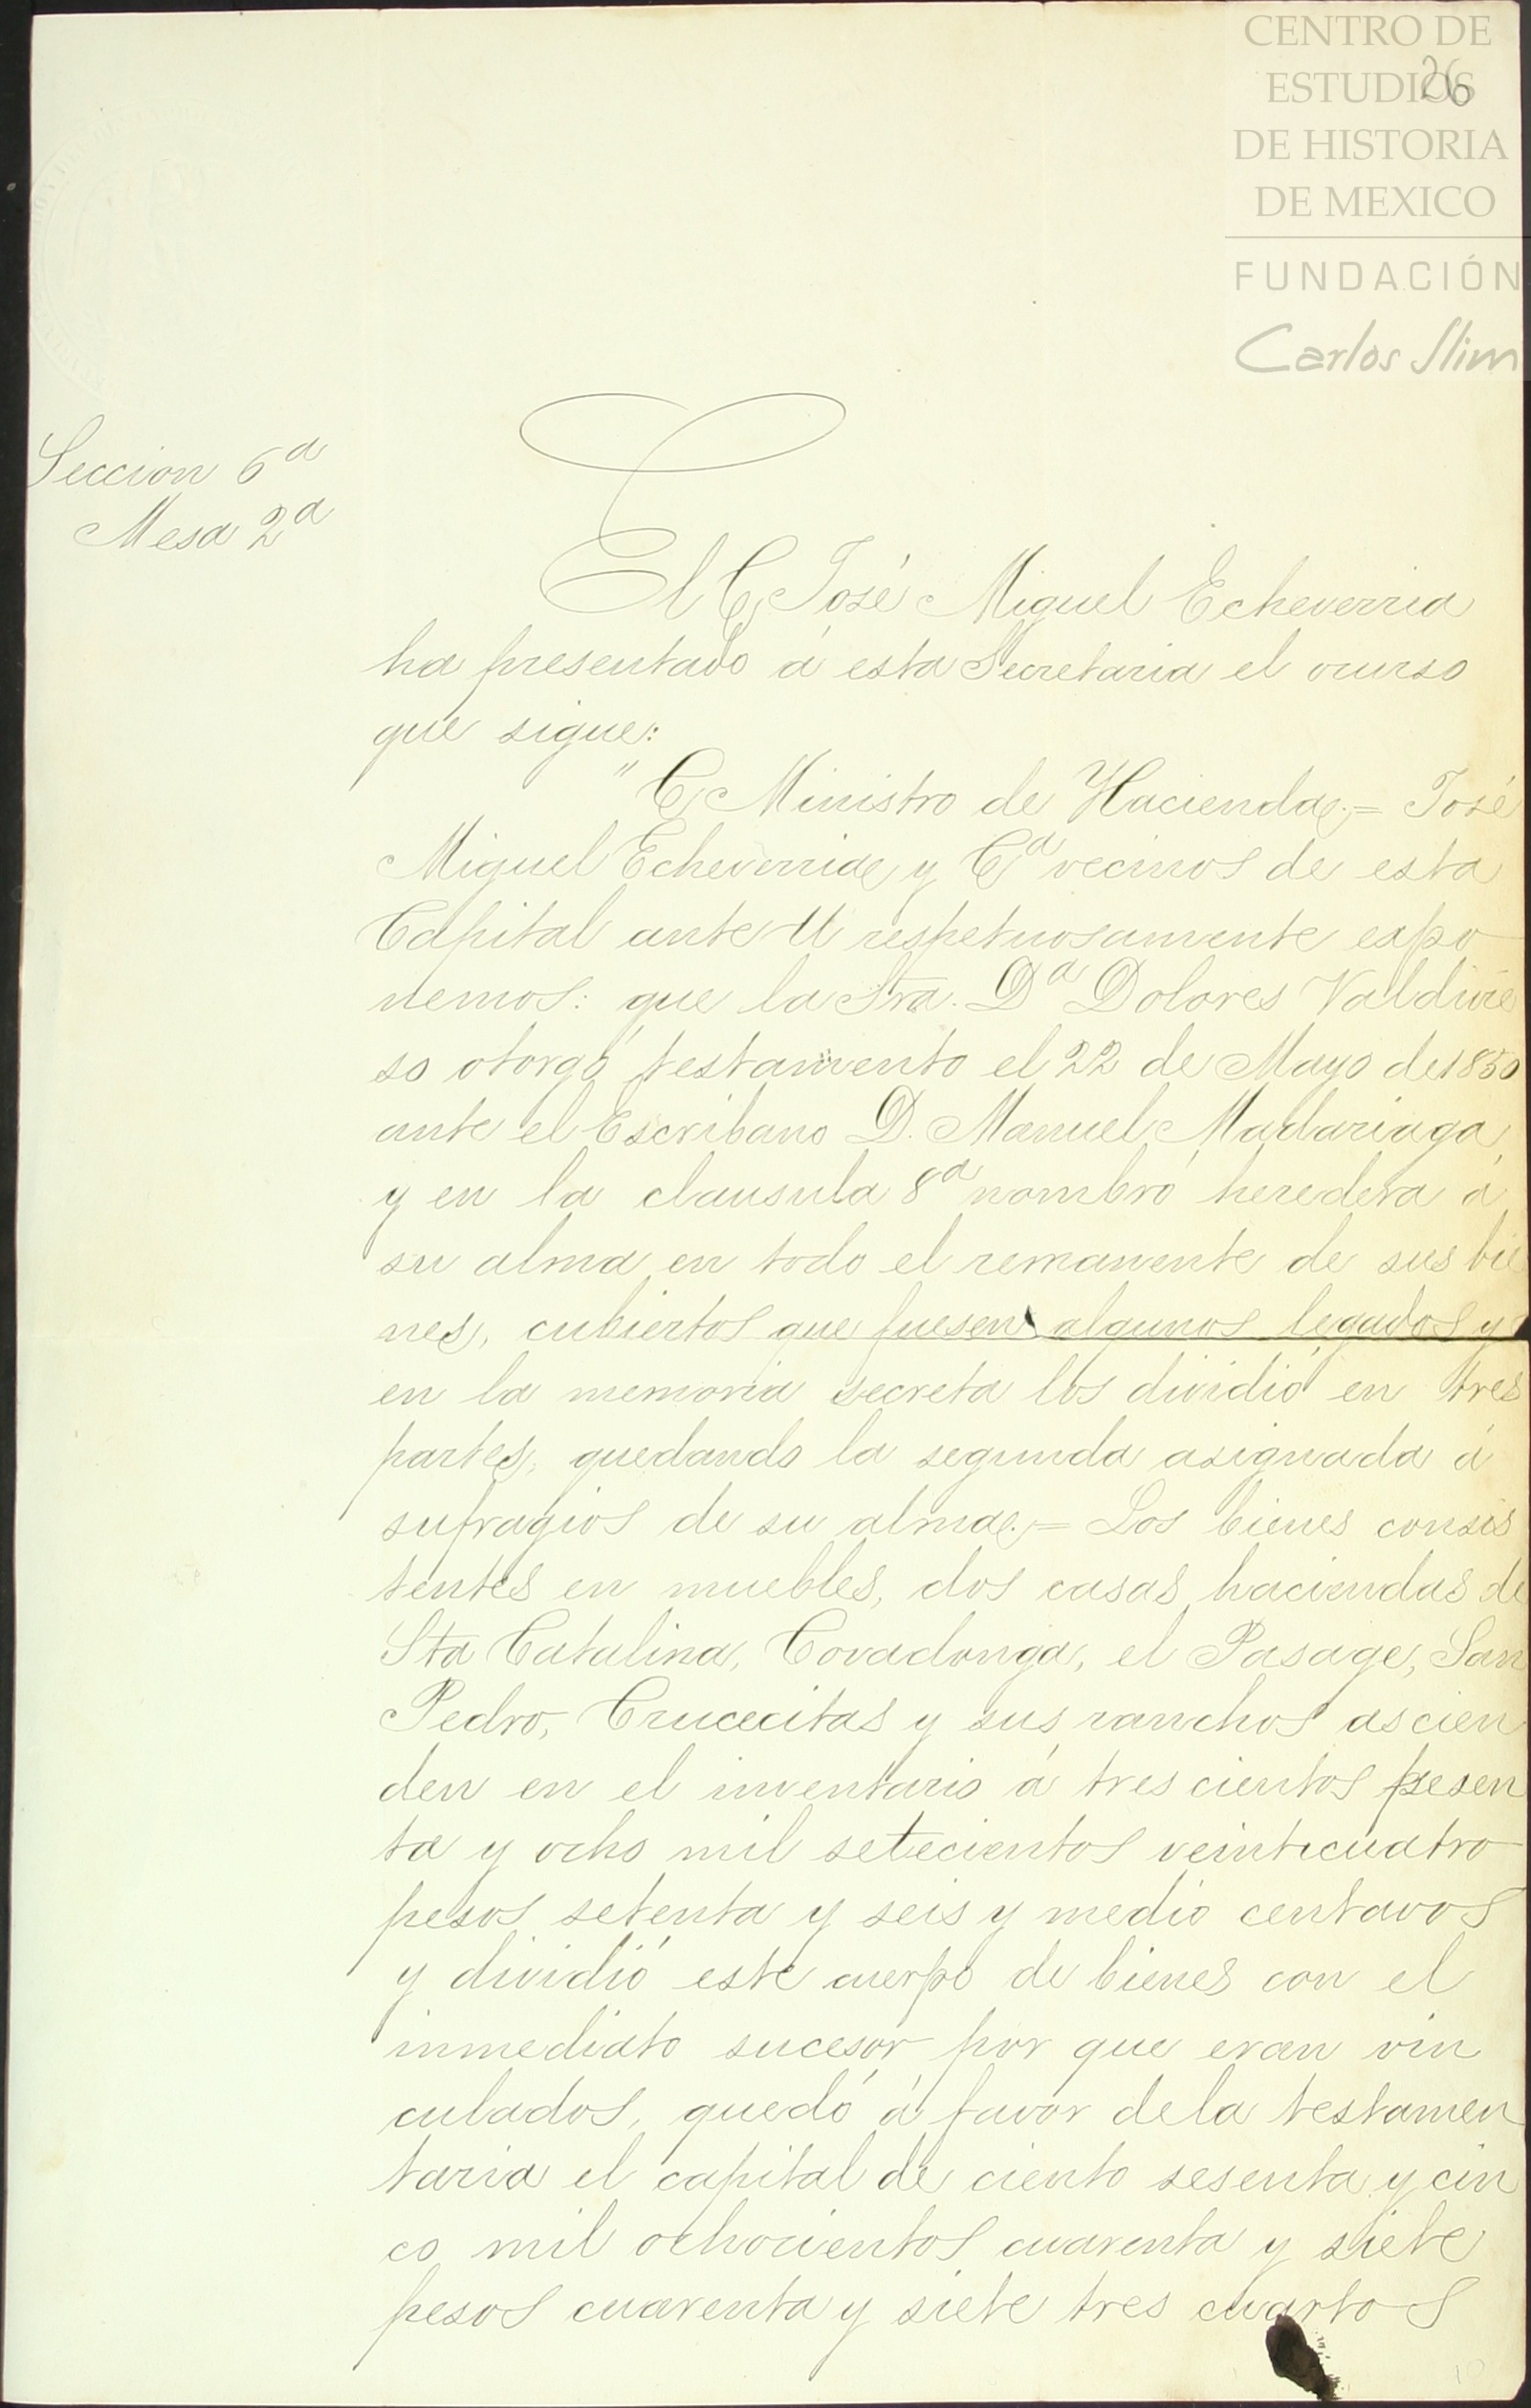 CENTRO DE
ESTUDIOS
26
DE HISTORIA
DE MEXICO
FUNDACIÓN
Carlos Slim
Seccion 6ª
Mesa 2ª
El C. José Miguel Echeverria
ha presentado á esta Secretaria el ocurso
que sigue:
"C. Ministro de Hacienda.= José
Miguel Echeverria y Cª vecinos de esta
Capital ante U respetuosamente expo
nemos: que la Sra. Dª Dolores Valdivie
so otorgó testamento el 22 de Mayo de 1850
ante el Escribano D. Manuel Madariaga,
y en la clausula 8ª nombró heredera á
su alma en todo el remanente de sus bie
nes, cubiertos que fuesen algunos legados y
en la memoria secreta los dividió en tres
partes, quedando la segunda asignada á
sufragios de su alma.= Los bienes consis
tentes en muebles, dos casas, haciendas de
Sta Catalina, Covadonga, el Pasage, San
Pedro, Crucecitas y sus ranchos ascien
den en el inventario á tres cientos sesen
ta y ocho mil setecientos veinticuatro
pesos setenta y seis y medio centavos
y dividió este cuerpo de bienes con el
inmediato sucesor por que eran vin
culados, quedó á favor de la testamen
taria el capital de ciento sesenta y cin
co mil ochocientos cuarenta y siete
pesos cuarenta y siete tres cuartos